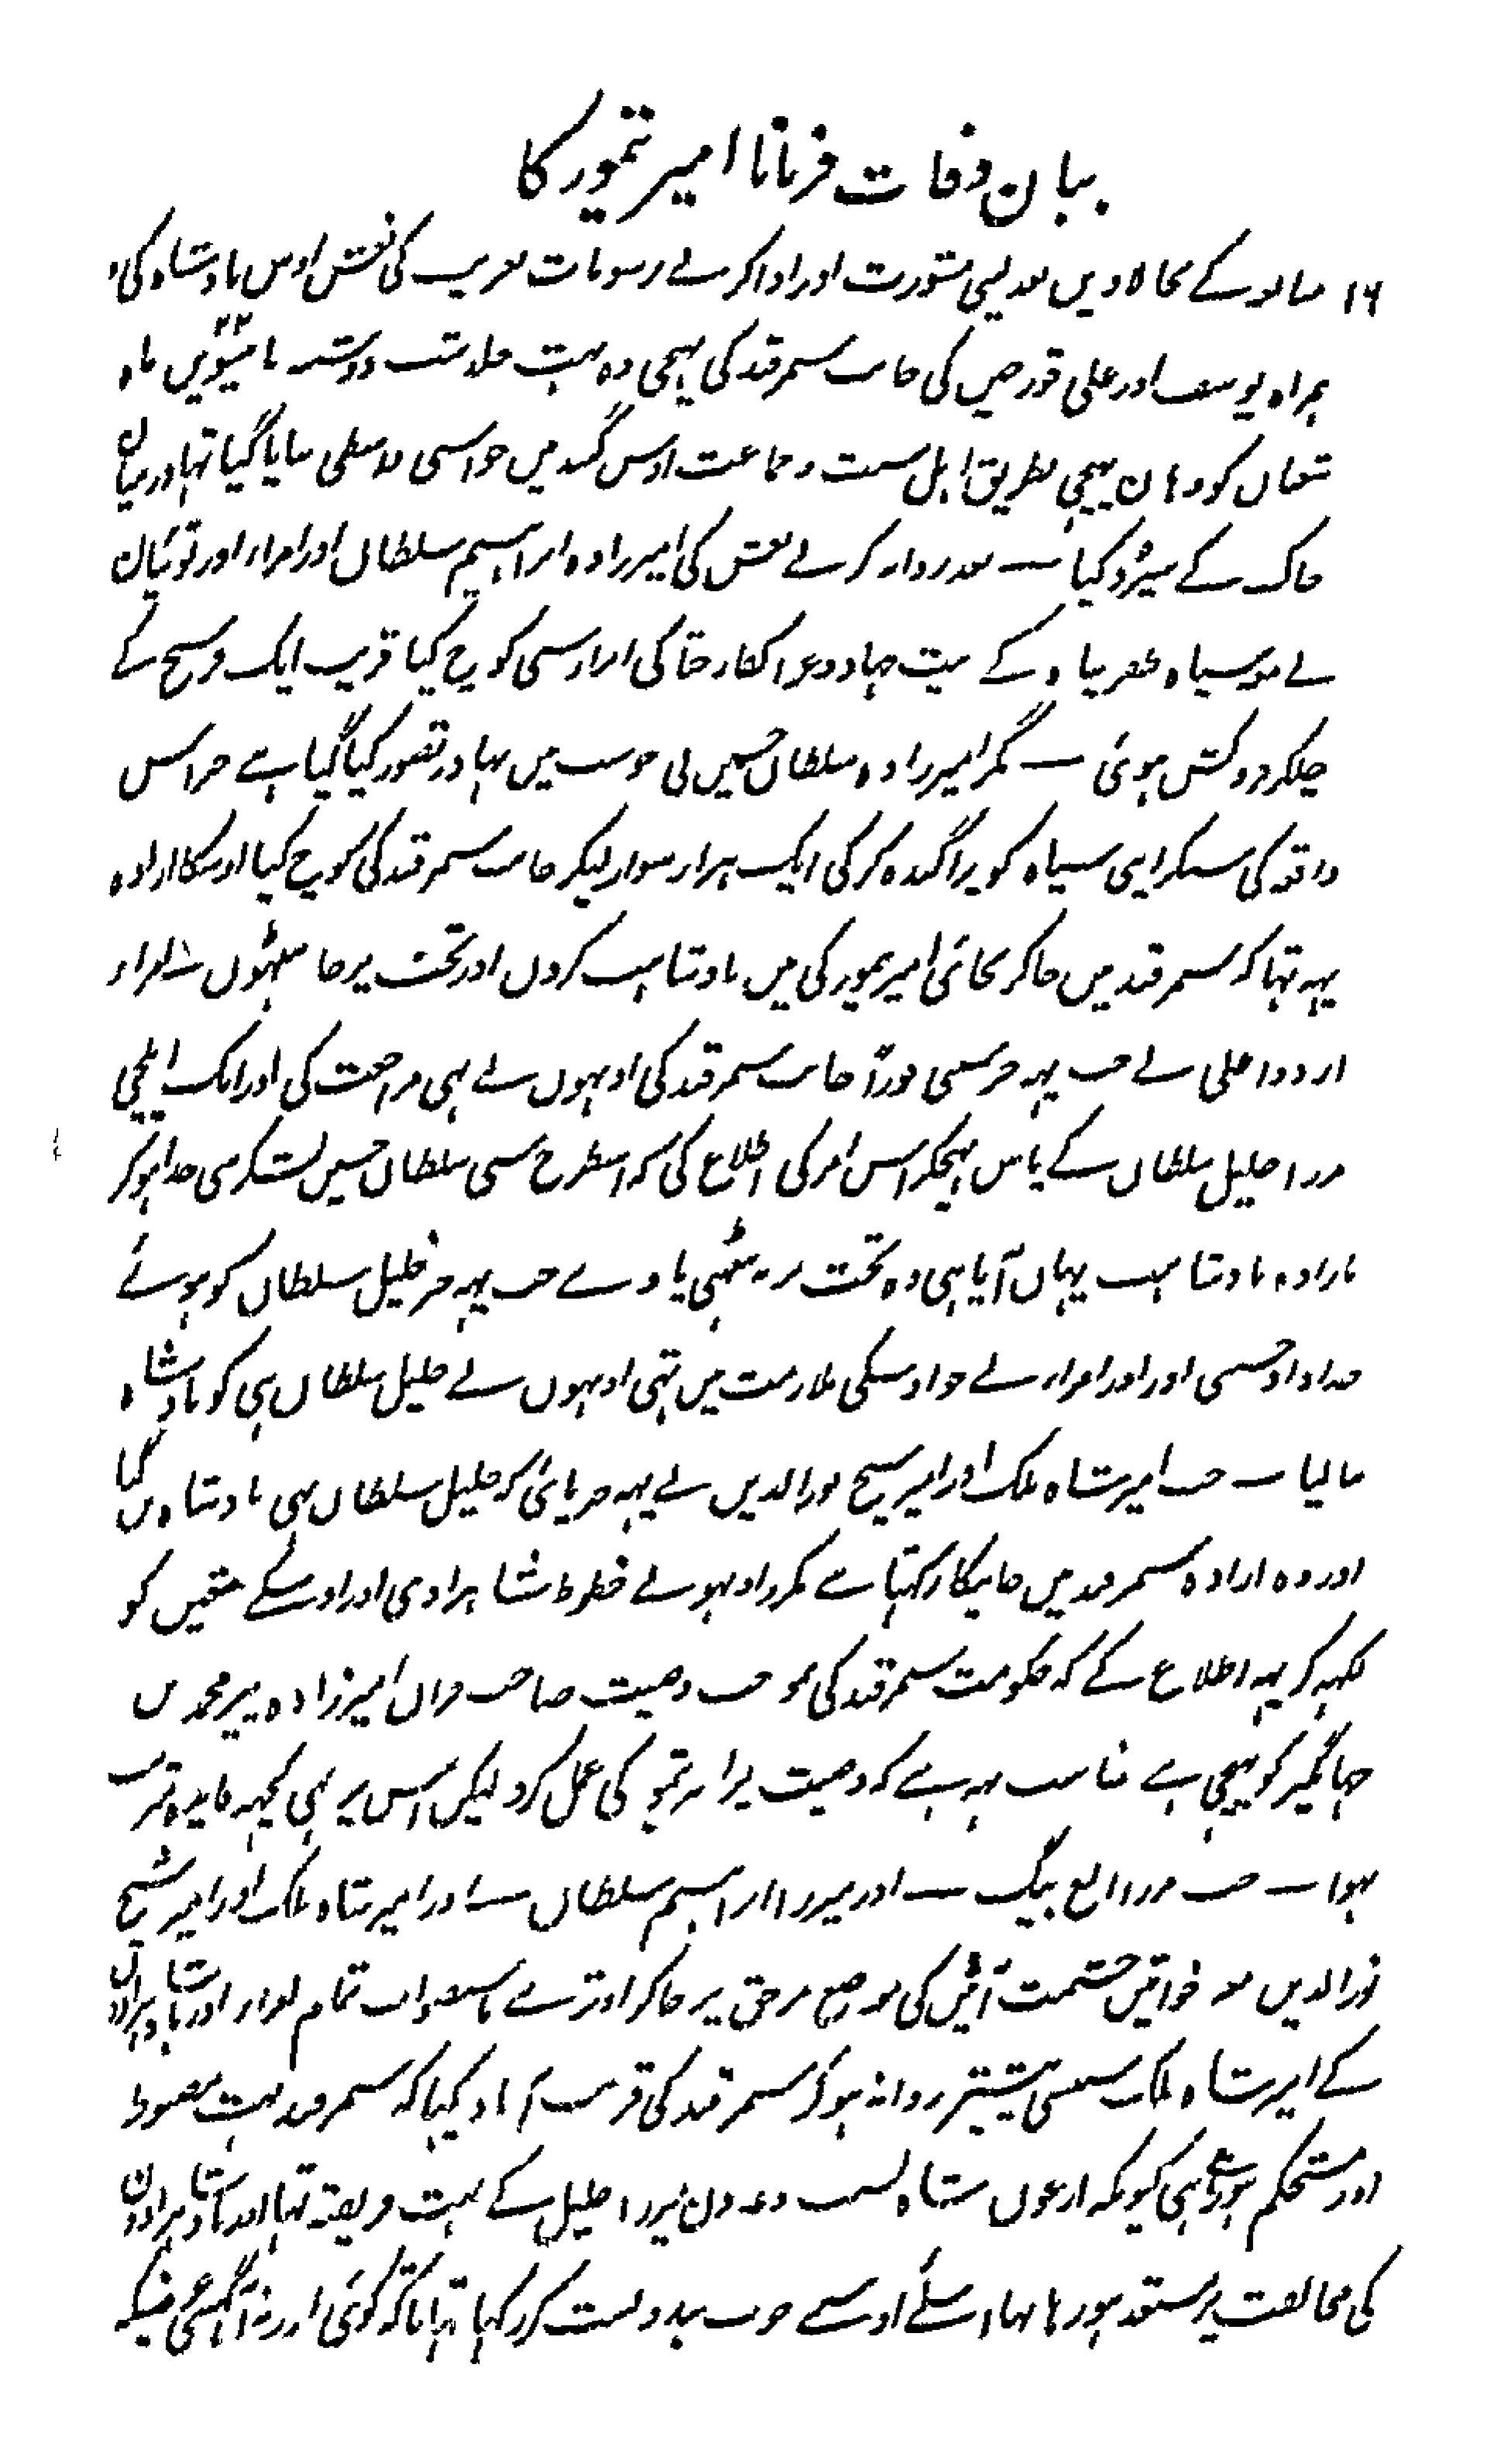 بیان وفات فرمانا امیر تیمور کا
۱۶ ماہ کے بعد لیسی مشورت اور ادا کرنے رسومات تعزیت کی نعش اوس بادشاہ کی
ہمراہ یوسف اور علی قورچی کی جانب سمرقند کی بہیجی وہ بہت جلد شب دوشنبہ بائیسویں ۲۲ ماہ
شعبان کو وہان پہنچی بطریق اہل سنت و جماعت اوس گنبد میں جو اسی واسطی بنایا گیا تہا درمیان
خاک کے سپرد کیا ــ بعد روانہ کرنے نعش کی امیرزادہ ابراہیم سلطان اور امراء اور نوئیان
نے مع سپاہ ظفر پناہ کے بنیت جہاد و غزا کفار ختا کی اترار سی کوچ کیا قریب ایک فرسخ کے
چلکر فروکش ہوئی ــ مگر امیرزادہ سلطان حسین نی جو سب میں بہادر تصور کیا گیا ہے خبر اس
واقعہ کی سنکر اپنی سپاہ کو پراگندہ کر کی ایک ہزار سوار لیکر جانب سمرقند کی کوچ کیا اوسکا ارادہ
یہہ تہا کہ سمرقند میں جاکر بجائی امیر تیمور کی میں بادشاہت کروں اور تخت پر جا بیٹہوں ــ امراء
اردو اعلی نے جب یہہ خبر سنی فوراً جانب سمرقند کی اونہوں نے بہی مراجعت کی اور ایک ایلچی
مرزا خلیل سلطان کے پاس بہیجکر اس امر کی اطلاع کی کہ اسطرح سی سلطان حسین لشکر سی جدا ہوکر
بارادہ بادشاہت یہاں آیا ہی وہ تخت پر نہ بیٹہنی پاوے جب یہہ خبر خلیل سلطان کو ہوئے
خداداد حسینی اور اور امراء نے جو اوسکی ملازمت میں تہی اونہوں نے خلیل سلطان ہی کو بادشاہ
بنالیا ــ جب امیر شاہ ملک اور امیر شیخ نورالدین نے یہہ خبر پائی کہ خلیل سلطان بہی بادشاہ بن گیا
اور وہ ارادہ سمرقند میں جانیکا رکہتا ہے مکرر اونہونے خطوط شاہزادی اور اوسکے متعلقین کو
لکہہ کر یہہ اطلاع کے کہ حکومت سمرقند کی بموجب وصیت صاحب قران امیرزادہ پیر محمد بن
جہانگیر کو پہنچی ہے مناسب یہہ ہے کہ وصیت پر امیر تیمور کی عمل کرو لیکن اس پر بہی کچہہ فایدہ مترتب
ہوا ــ جب مرزا الغ بیگ ــ اور میرزا ابراہیم سلطان ــ اور امیر شاہ ملک اور امیر شیخ
نورالدین مع خواتین حشمت آئین کی موضع برحق پر جاکر اوترے باستصواب تمام امراء اور شاہزادوں
کے امیر شاہ ملک سب سی پیشتر روانہ ہوکر سمرقند کی قریب آیا دیکہا کہ سمرقند بہت مضبوط
اور مستحکم ہورہا ہی کیونکہ ارغون شاہ بسبب وعدہ مرزا خلیل کے بہت فریفتہ تہا اور شاہزادوں
کی مخالفت پر مستعد ہورہا تہا اسلئے اوسنے خوب بندوبست کر رکہا تہا تاکہ کوئی اور نہ آگہسی